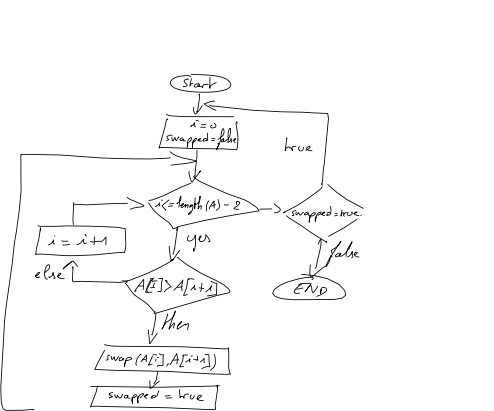 start
i=0
swapped=false
true
i<=length(A)-2
swapped=true
yes
i = i+1
false
else
A[i]>A[i+i]
END
then
swap(A[i],A[i+1])
swapped = true